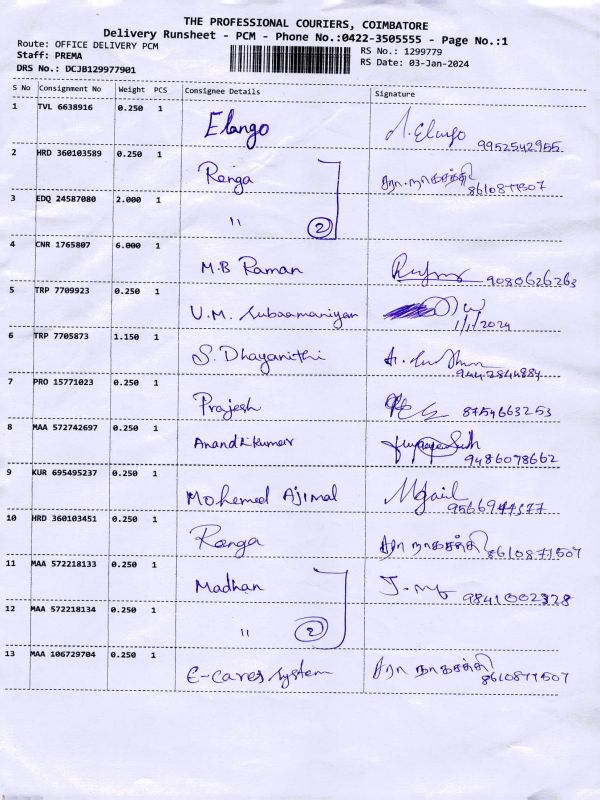 THE PROFESSIONAL COURIERS, COIMBATORE
Delivery Runsheet - PCM - Phone No.:0422-3505555 - Page No.:1
Route: OFFICE DELIVERY PCM RS No.: 1299779
Staff: PREMA RS Date: 03-Jan-2024
DRS No.: DCJB129977901
S No Consignment No Weight PCS Consignee Details Signature
1 TVL 6638916 0.250 1 Elango Elango
9952542955
2 HRD 360103589 0.250 1 Renga
8610877507
3 EDQ 24587080 2.000 1 " 2
4 CNR 1765807 6.000 1 M.B Raman 9080626263
5 TRP 7709923 0.250 1 V.M. Subaamaniyan
1/1/2024
6 TRP 7705873 1.150 1 S. Dhayanithi
9442844884
7 PRO 15771023 0.250 1 Prajesh 8754663253
8 MAA 572742697 0.250 1 Anandhkumar
9486078662
9 KUR 695495237 0.250 1 Mohemed Ajimal
10 HRD 360103451 0.250 1 Renga 8610877507
11 MAA 572218133 0.250 1 Madhan
9841002328
12 MAA 572218134 0.250 1 " 2
13 MAA 106729704 0.250 1 E-cares system
8610877507